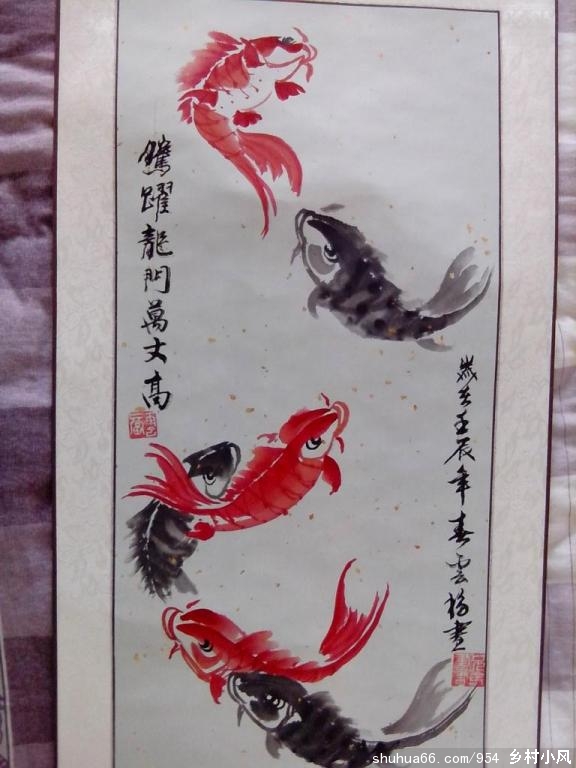 騰躍龍門萬丈高
歲在壬辰年春雲
畫
shuhua66.com/954 乡村小风